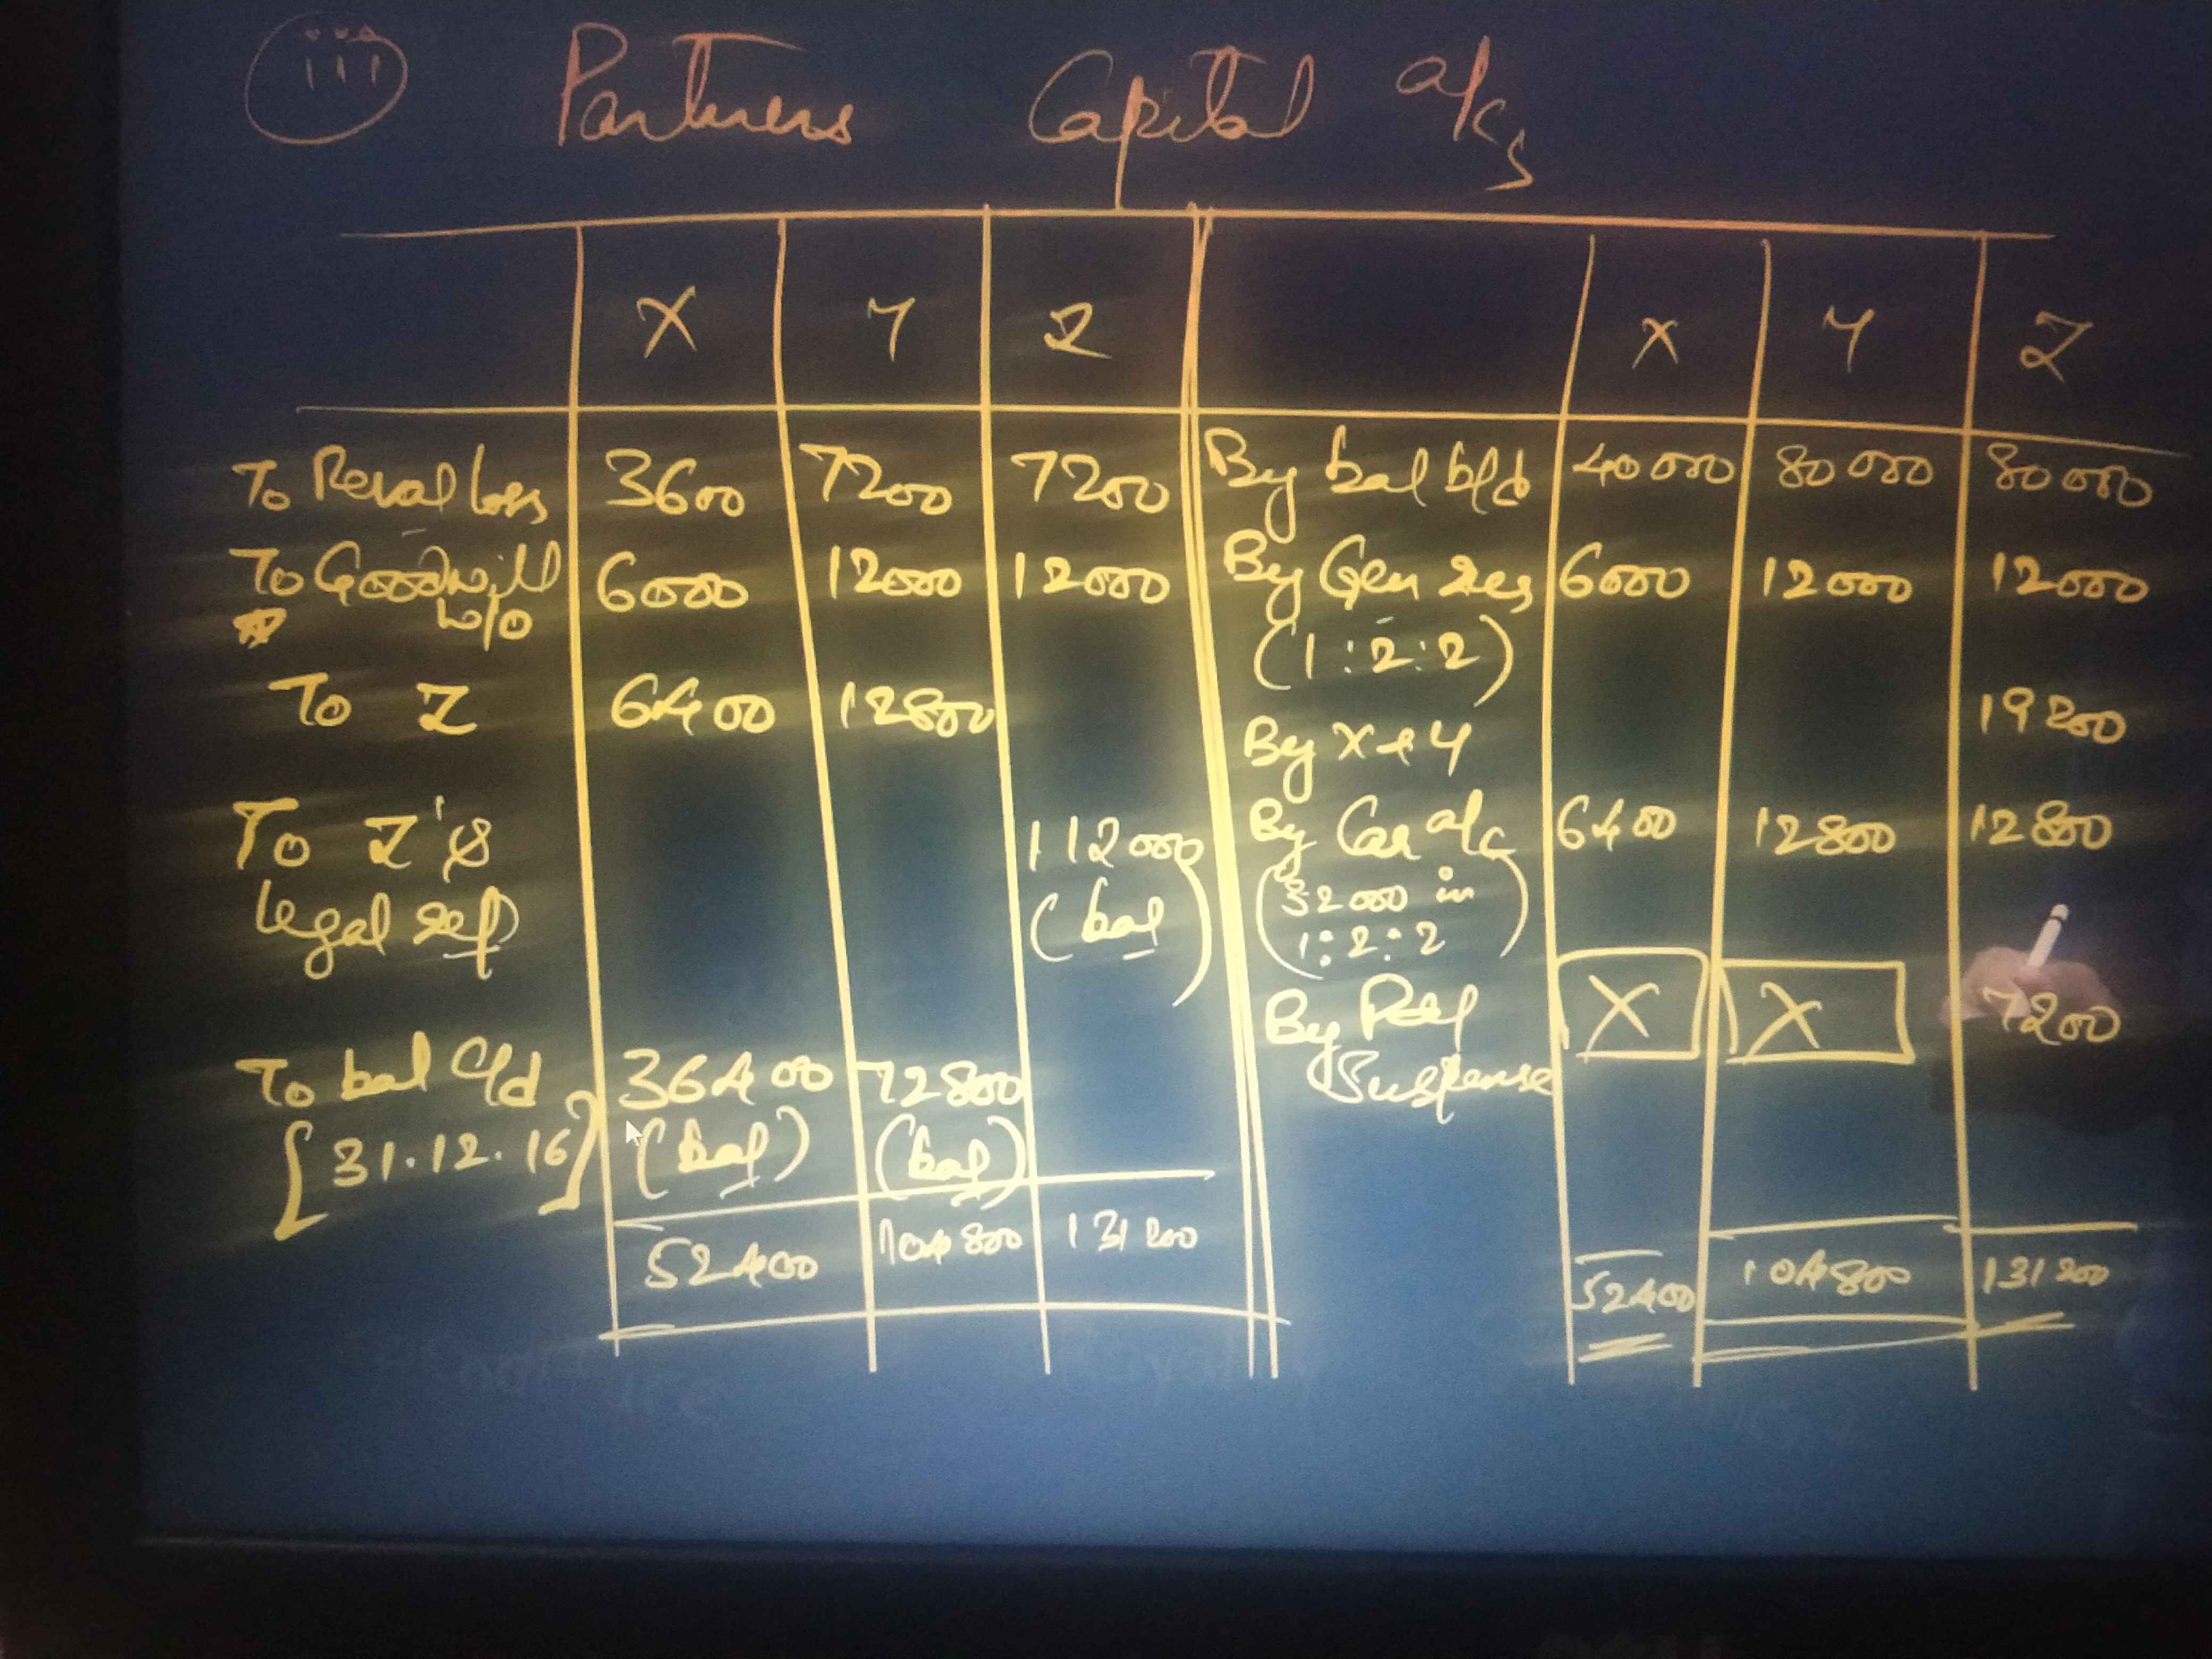 iii Partners Capital a/cs
X Y Z X Y Z
To Reval loss 3600 7200 7200 By bal b/d 40000 80000 80000
To Goodwill w/o 6000 12000 12000 By Gen res 6000 12000 12000
(1:2:2)
To Z 6400 12800 By X & Y 19200
To Z's 112000 By Car a/c 6400 12800 12800
legal rep (bal) (32000 in
1:2:2)
By P&L X X 7200
Suspense
To bal c/d 36400 72800
[31.12.16] (bal) (bal)
52400 104800 131200 52400 104800 131200